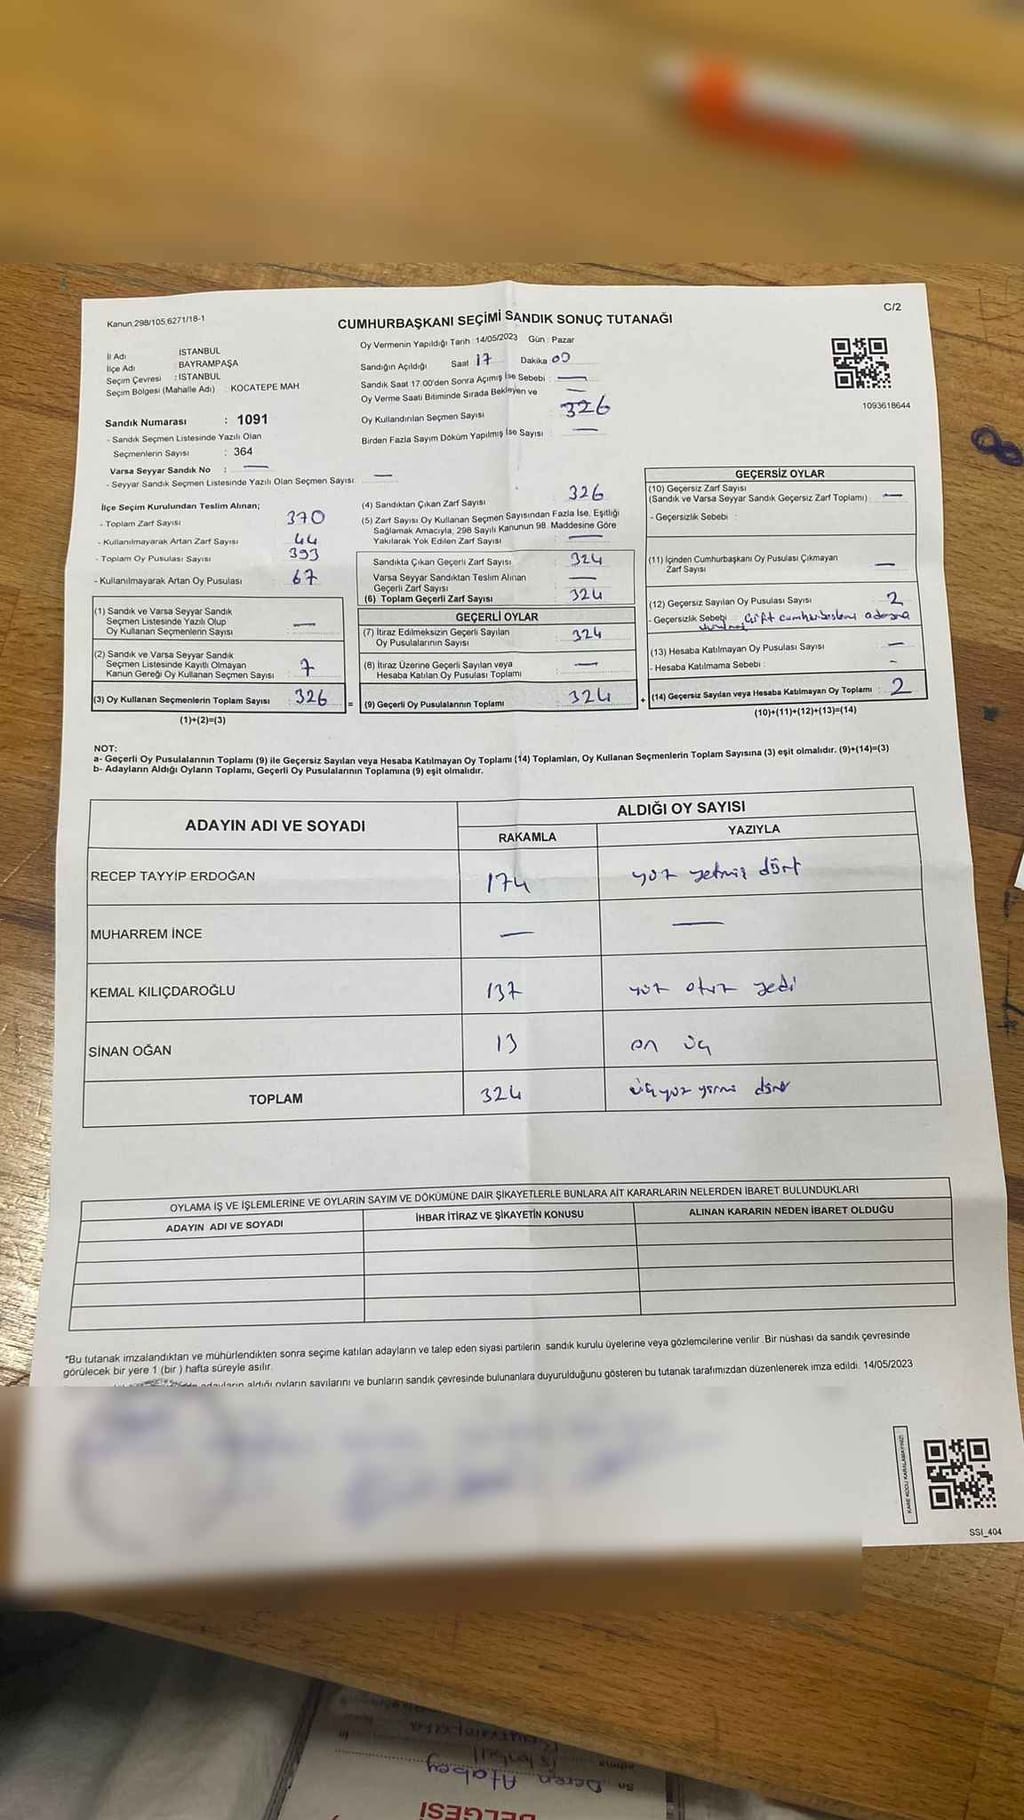 Kanun;298/105;6271/18-1
C/2
CUMHURBAŞKANI SEÇİMİ SANDIK SONUÇ TUTANAĞI
İl Adı İSTANBUL
İlçe Adı BAYRAMPAŞA
Seçim Çevresi : İSTANBUL
Seçim Bölgesi (Mahalle Adı) KOCATEPE MAH
Sandık Numarası : 1091
- Sandık Seçmen Listesinde Yazılı Olan
Seçmenlerin Sayısı : 364
Varsa Seyyar Sandık No : —
- Seyyar Sandık Seçmen Listesinde Yazılı Olan Seçmen Sayısı —
Oy Vermenin Yapıldığı Tarih :14/05/2023 Gün : Pazar
Sandığın Açıldığı Saat 17 Dakika 00
Sandık Saat 17.00'den Sonra Açımış İse Sebebi : —
Oy Verme Saati Bitiminde Sırada Bekleyen ve —
Oy Kullandırılan Seçmen Sayısı 326
Birden Fazla Sayım Döküm Yapılmış İse Sayısı —
1093618644
İlçe Seçim Kurulundan Teslim Alınan;
- Toplam Zarf Sayısı 370
- Kullanılmayarak Artan Zarf Sayısı 44
- Toplam Oy Pusulası Sayısı 393
- Kullanılmayarak Artan Oy Pusulası 67
(1) Sandık ve Varsa Seyyar Sandık
Seçmen Listesinde Yazılı Olup
Oy Kullanan Seçmenlerin Sayısı —
(2) Sandık ve Varsa Seyyar Sandık
Seçmen Listesinde Kayıtlı Olmayan
Kanun Gereği Oy Kullanan Seçmen Sayısı 7
(3) Oy Kullanan Seçmenlerin Toplam Sayısı 326 =
(1)+(2)=(3)
(4) Sandıktan Çıkan Zarf Sayısı 326
(5) Zarf Sayısı Oy Kullanan Seçmen Sayısından Fazla İse, Eşitliği
Sağlamak Amacıyla, 298 Sayılı Kanunun 98. Maddesine Göre
Yakılarak Yok Edilen Zarf Sayısı —
Sandıkta Çıkan Geçerli Zarf Sayısı 324
Varsa Seyyar Sandıktan Teslim Alınan
Geçerli Zarf Sayısı —
(6) Toplam Geçerli Zarf Sayısı 324
GEÇERLİ OYLAR
(7) İtiraz Edilmeksizin Geçerli Sayılan
Oy Pusulalarının Sayısı 324
(8) İtiraz Üzerine Geçerli Sayılan veya
Hesaba Katılan Oy Pusulası Toplamı —
(9) Geçerli Oy Pusulalarının Toplamı 324 +
GEÇERSİZ OYLAR
(10) Geçersiz Zarf Sayısı
(Sandık ve Varsa Seyyar Sandık Geçersiz Zarf Toplamı) —
- Geçersizlik Sebebi :
(11) İçinden Cumhurbaşkanı Oy Pusulası Çıkmayan
Zarf Sayısı —
(12) Geçersiz Sayılan Oy Pusulası Sayısı 2
- Geçersizlik Sebebi Çift cumhurbaşkanı adayına
(13) Hesaba Katılmayan Oy Pusulası Sayısı —
- Hesaba Katılmama Sebebi : -
(14) Geçersiz Sayılan veya Hesaba Katılmayan Oy Toplamı 2
(10)+(11)+(12)+(13)=(14)
NOT:
a- Geçerli Oy Pusulalarının Toplamı (9) ile Geçersiz Sayılan veya Hesaba Katılmayan Oy Toplamı (14) Toplamları, Oy Kullanan Seçmenlerin Toplam Sayısına (3) eşit olmalıdır. (9)+(14)=(3)
b- Adayların Aldığı Oyların Toplamı, Geçerli Oy Pusulalarının Toplamına (9) eşit olmalıdır.
ADAYIN ADI VE SOYADI ALDIĞI OY SAYISI
RAKAMLA YAZIYLA
RECEP TAYYİP ERDOĞAN 174 yüz yetmiş dört
MUHARREM İNCE — —
KEMAL KILIÇDAROĞLU 137 yüz otuz yedi
SİNAN OĞAN 13 on üç
TOPLAM 324 üçyüz yirmi dört
OYLAMA İŞ VE İŞLEMLERİNE VE OYLARIN SAYIM VE DÖKÜMÜNE DAİR ŞİKAYETLERLE BUNLARA AİT KARARLARIN NELERDEN İBARET BULUNDUKLARI
ADAYIN ADI VE SOYADI İHBAR İTİRAZ VE ŞİKAYETİN KONUSU ALINAN KARARIN NEDEN İBARET OLDUĞU
*Bu tutanak imzalandıktan ve mühürlendikten sonra seçime katılan adayların ve talep eden siyasi partilerin sandık kurulu üyelerine veya gözlemcilerine verilir .Bir nüshası da sandık çevresinde
görülecek bir yere 1 (bir ) hafta süreyle asılır.
adayların aldığı oyların sayılarını ve bunların sandık çevresinde bulunanlara duyurulduğunu gösteren bu tutanak tarafımızdan düzenlenerek imza edildi. 14/05/2023
KARE KODU KARALAMAYINIZ!
SSI_404
Bayrampaşa
İstanbul
Deren Atabey
BELGESİ